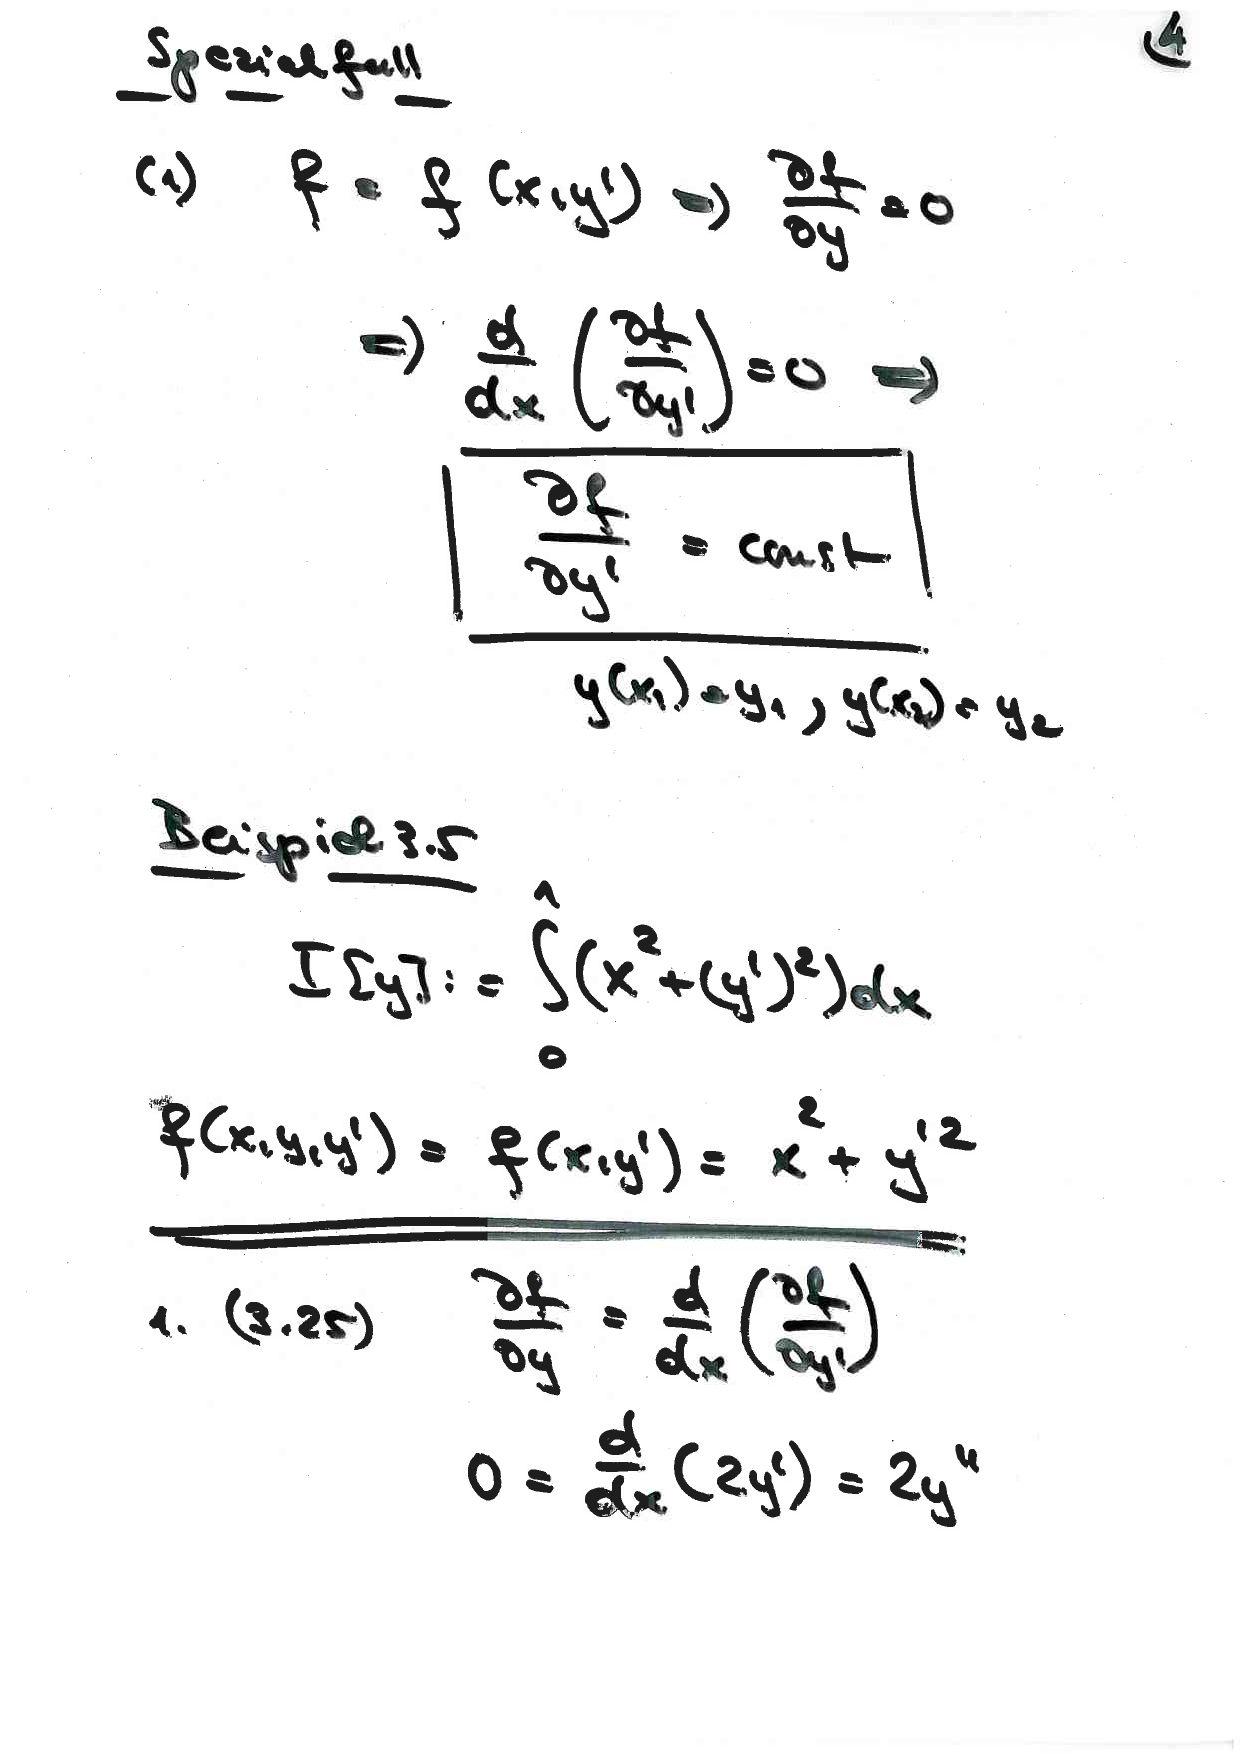 4
Spezialfall
(1) f = f (x, y') ⇒ ∂f/∂y = 0
⇒ d/dx (∂f/∂y') = 0 ⇒
∂f/∂y' = const
y(x₁) = y₁, y(x₂) = y₂
Beispiel 3.5
I[y] := ∫₀¹ (x² + (y')²) dx
f(x, y, y') = f(x, y') = x² + y'²
1. (3.25) ∂f/∂y = d/dx (∂f/∂y')
0 = d/dx (2y') = 2y"